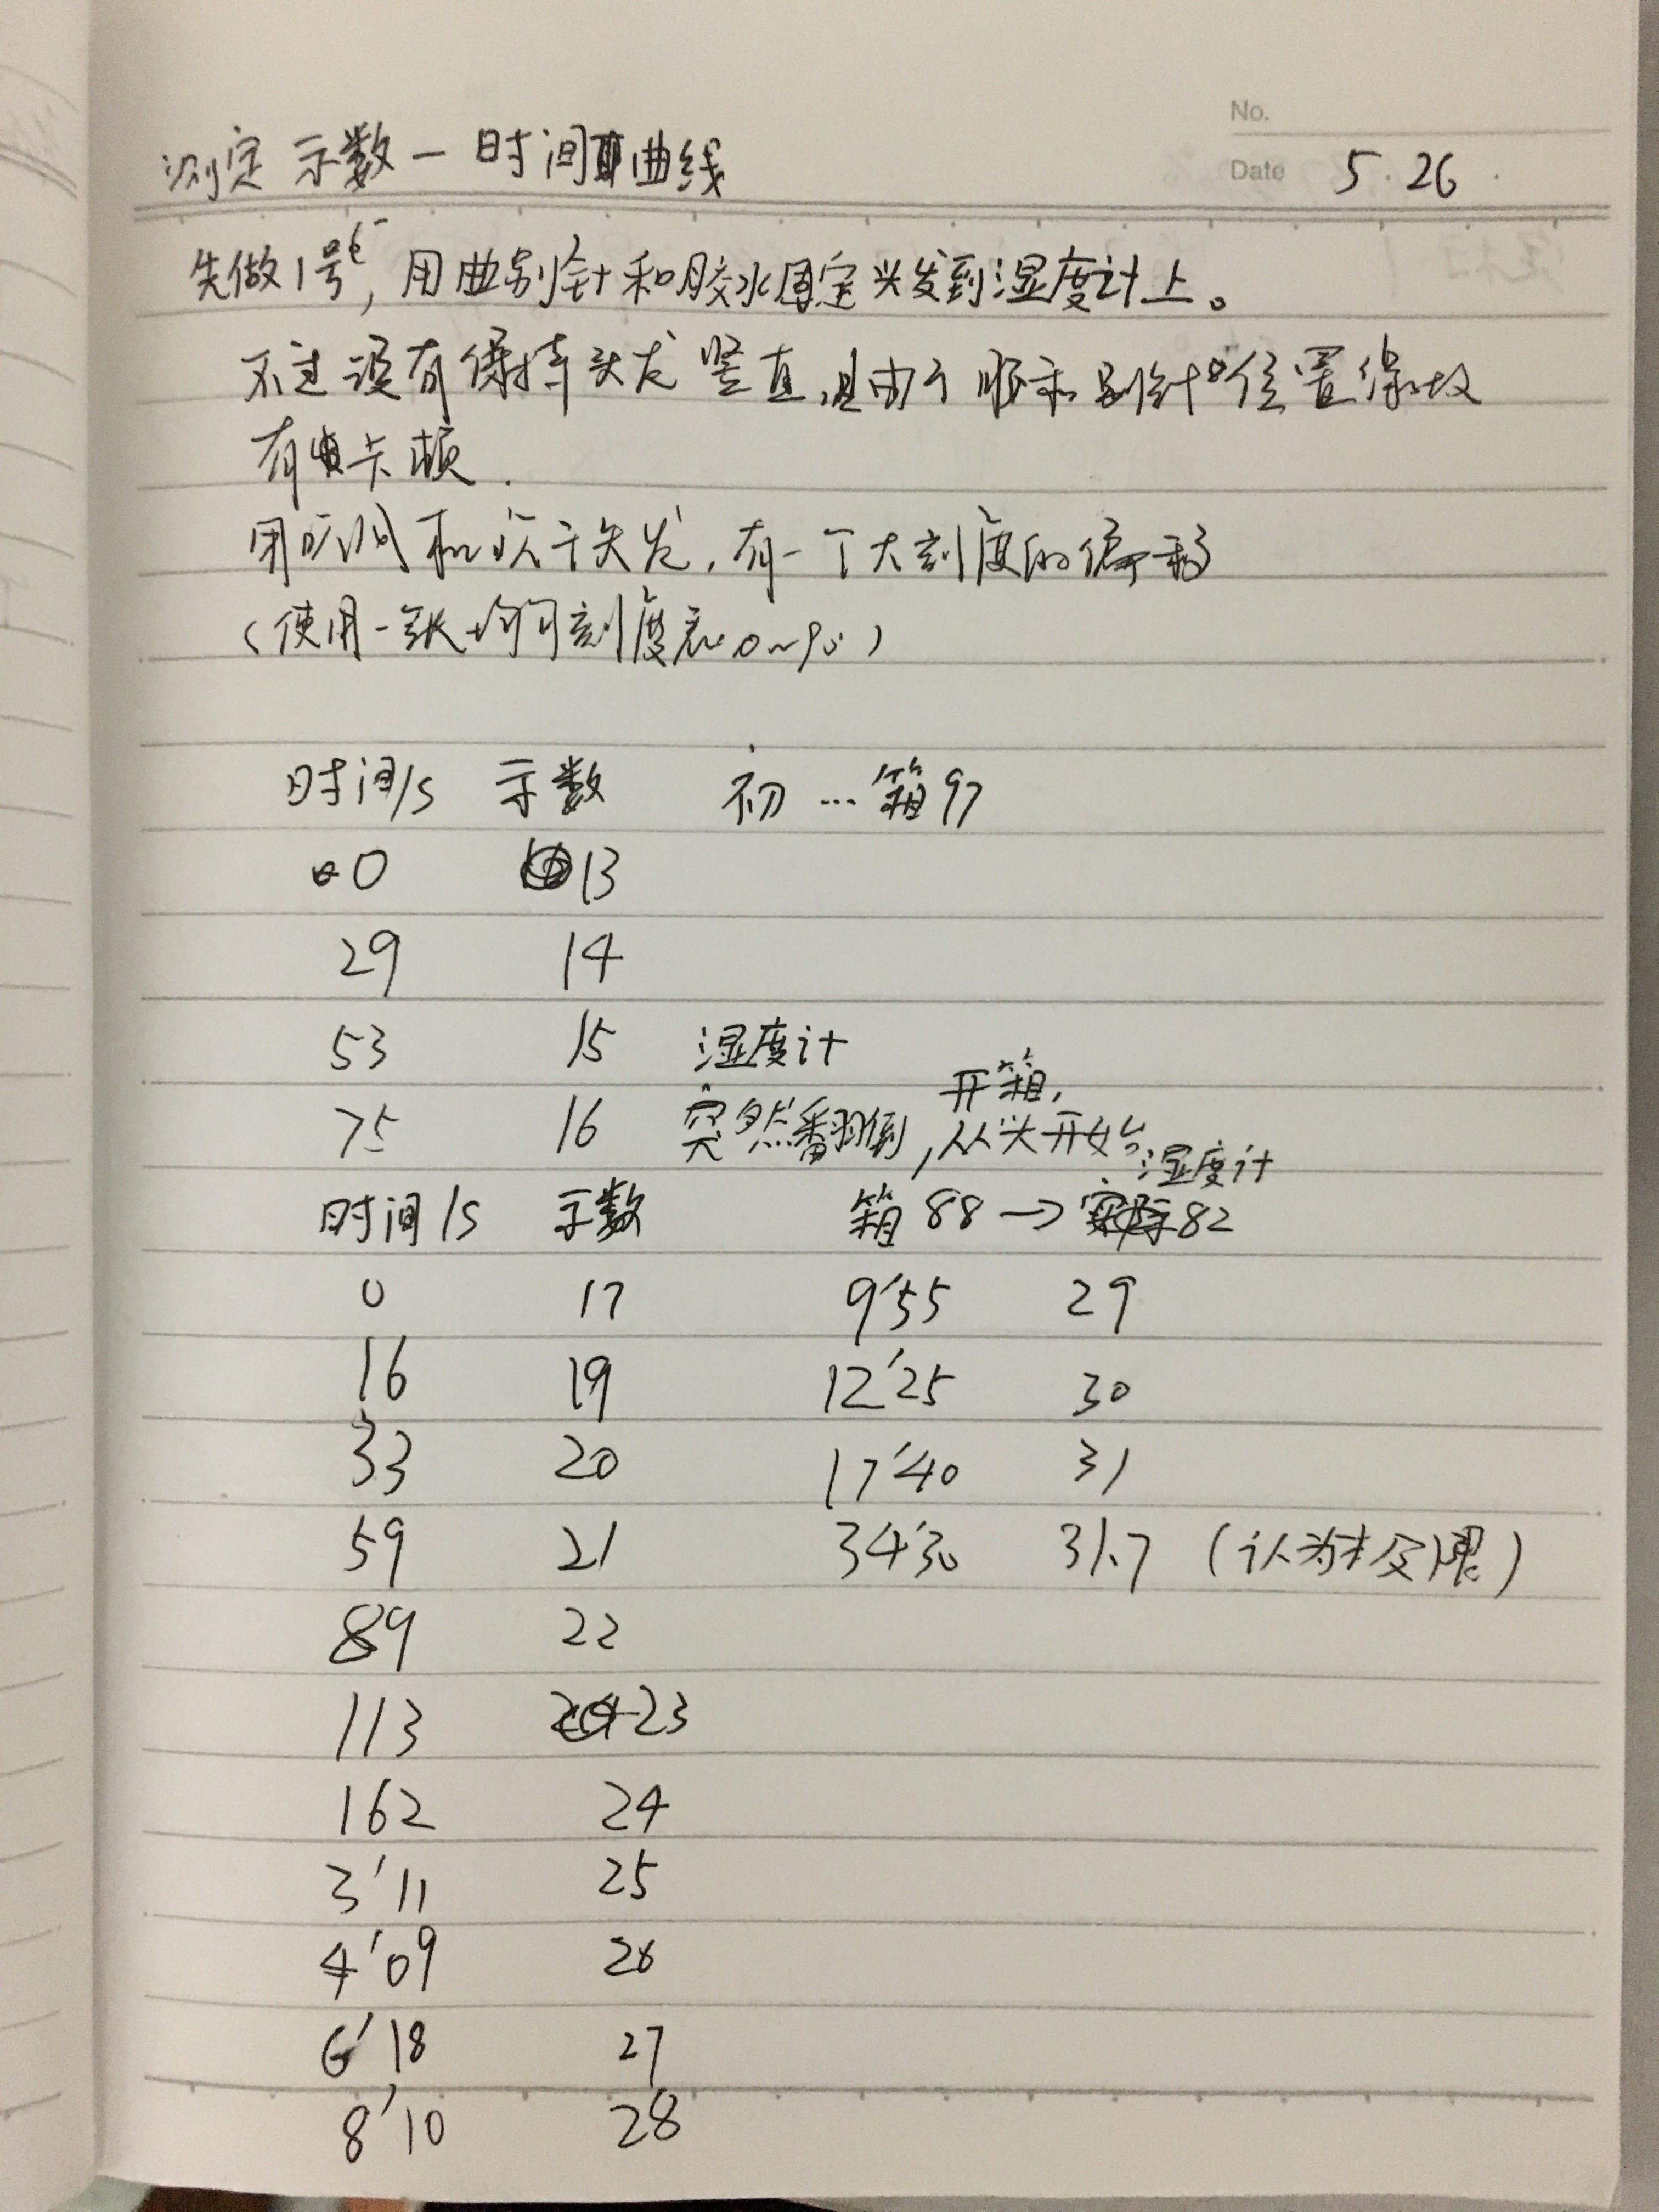 No.
测定 示数—时间曲线
Date 5.26
先做1号, 用曲别针和胶水固定头发到湿度计上。
不过没有保持头发竖直,且由于胶和别针位置缘故
有卡顿.
用 和 头发,有一个大刻度的偏移
(使用一张均匀刻度 0~90)
时间/s 示数 初…箱97
0 13
29 14
53 15 湿度计
75 16 突然翻倒, 开箱, 从头开始
时间/s 示数 箱88→湿度计82
0 17 9'55 29
16 19 12'25 30
33 20 17'40 31
59 21 34'30 31.7 (认为 极限)
89 22
113 23
162 24
3'11 25
4'09 26
6'18 27
8'10 28